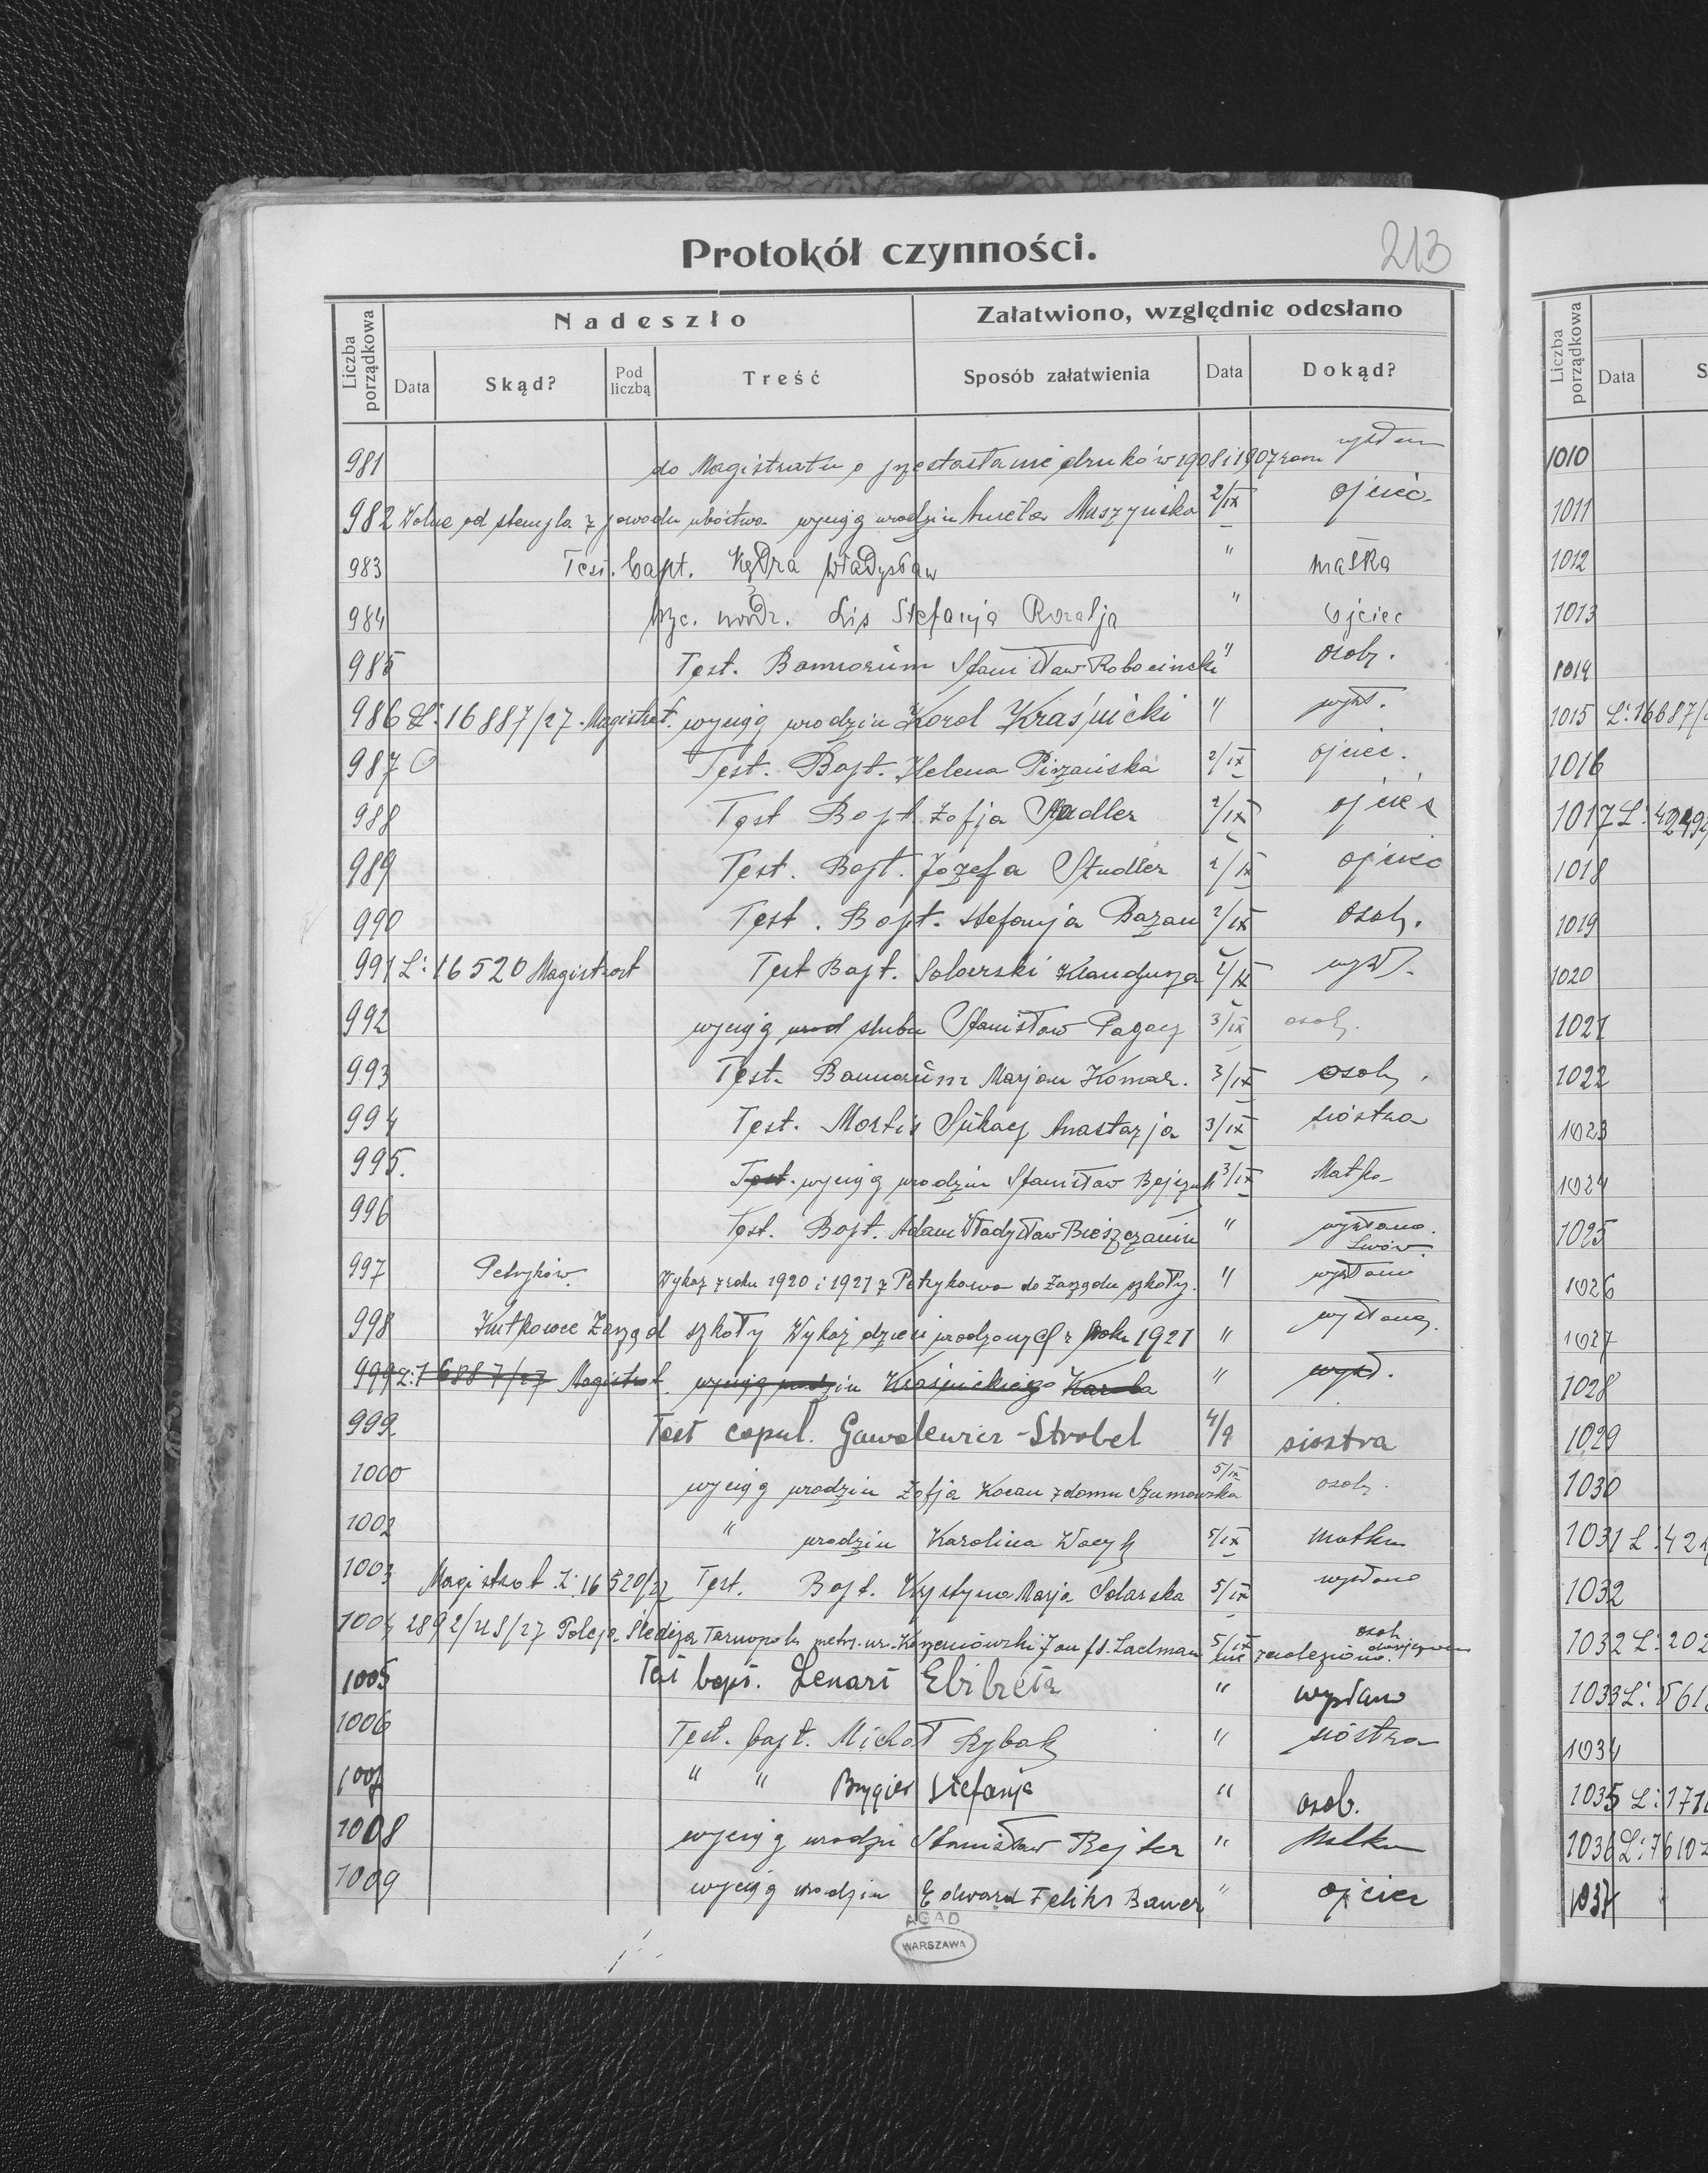 213
Protokół czynności.
Liczba porządkowa
Nadeszło
Załatwiono, względnie odesłano
Data
Skąd?
Pod liczbą
Treść
Sposób załatwienia
Data
Dokąd?
981 do Magistratu o druków 1908 i 1907
982 Wolne od stempla z powodu ubóstwa wyciąg urodzin Aniela Muszyńska 2/IX ojciec
983 Test. bapt. Kędra Władysław " matka
984 wyc. urodz. Lis Stefanja Rozalja " ojciec
985 Test. Bannorum Stanisław " osob.
986 L: 16887/27 Magistrat. wyciąg urodzin Karol Kraśnicki " wysł.
987 Test. Bapt. Helena 2/IX ojciec.
988 Test Bapt. Zofja Studler 2/IX ojciec
989 Test. Bapt. Józefa Studler 2/IX ojciec
990 Test. Bapt. Stefanja Bazan 2/IX osob.
991 L: 16520 Magistrat Test Bapt. 2/IX wysł.
992 wyciąg urod ślubu Stanisław Pagacz 3/IX osob.
993 Test. Bannorum Marjan Komar. 3/IX osob.
994 Test. Mortis Anastazja 3/IX siostra
995. Test. wyciąg urodzin Stanisław 3/IX Matka
996 Test. Bapt. Adam Władysław " wysłano Lwów.
997 Petryków. Wykaz z roku 1920 i 1921 z Petrykowa do Zarządu szkoły. " wysłano
998 Kutkowce Zarząd szkoły Wykaz dzieci urodzonych z roku 1921 " wysłano
999 L: 16887/27 Magistrat. wyciąg urodzin Kraśnickiego Karola " wysł.
999 Test copul. Gawalewicz-Strobel 4/9 siostra
1000 wyciąg urodzin Zofja Kocan z domu Szumowska 5/IX osob.
1002 " urodzin Karolina 5/IX Matka
1003 Magistrat L: 16520/27 Test. Bapt. Krystyna Marja Solarska 5/IX wysłano
1004 2892/ /27 Policja Śledcza Tarnopol metr. ur. Jan 5/IX nie znaleziono.
1005 Test bapt. Lenart Elżbieta " wysłano
1006 Test. bapt. Michał Rybak " siostra
1007 " " Brygier Stefanja " osob.
1008 wyciąg urodzin Stanisław Bejter " Matka
1009 wyciąg urodzin Edward Feliks Bauer " ojciec
AGAD
WARSZAWA
Liczba porządkowa
Data
S
1010
1011
1012
1013
1014
1015 L: 16687/
1016
1017 L:
1018
1019
1020
1021
1022
1023
1024
1025
1026
1027
1028
1029
1030
1031 L: 42
1032
1032 L: 202
1033 L: 561
1034
1035 L: 171
1036 L: 7610
1037